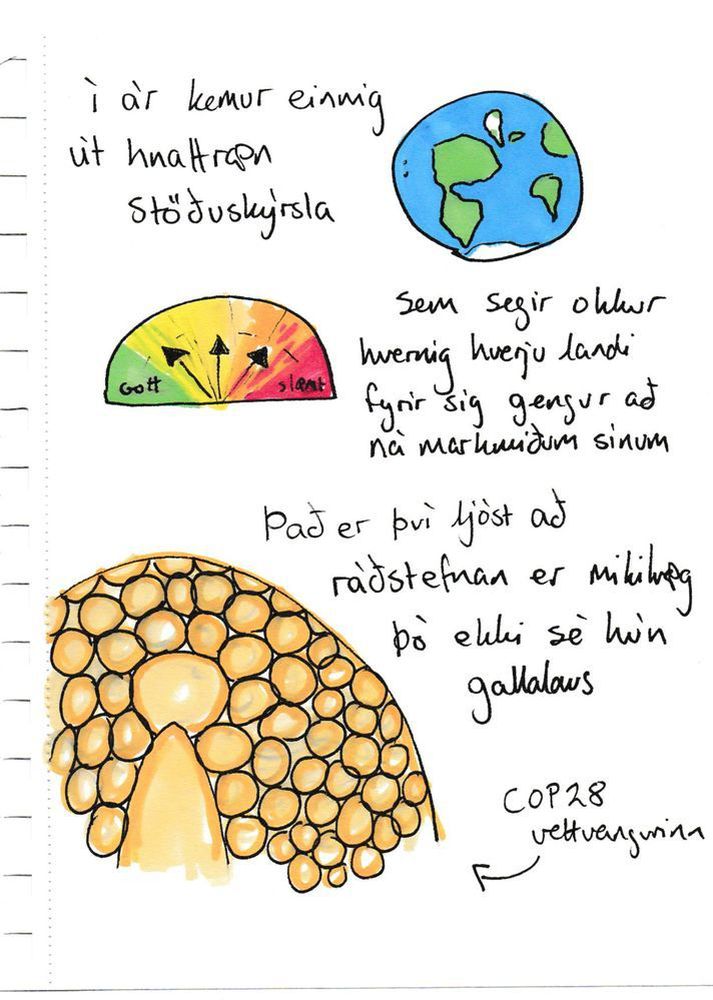 í ár kemur einnig
út hnattræn
Stöðuskýrsla
Sem segir okkur
hvernig hverju landi
fyrir sig gengur að
ná markmiðum sínum
Gott
slæmt
Það er því ljóst að
ráðstefnan er mikilvæg
þó ekki sé hún
gallalaus
COP28
vettvangurinn